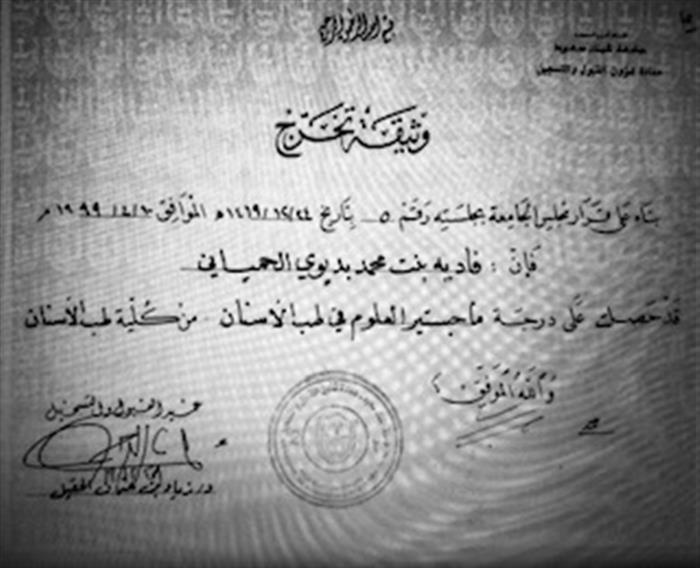 بسم الله الرحمن الرحيم
جامعة الملك سعود
عمادة شؤون القبول والتسجيل
وثيقة تخرج
بناء على قرار مجلس الجامعة بجلسته رقم ٥ بتاريخ ١٤١٩/١٢/٢٤ه الموافق ١٩٩٩/٤/١٠م
فإن : فاديه بنت محمد بديوي الحمياني
قد حصلت على درجة ماجستير العلوم في طب الأسنان من كلية طب الأسنان
والله الموفق ؛
عميد القبول والتسجيل